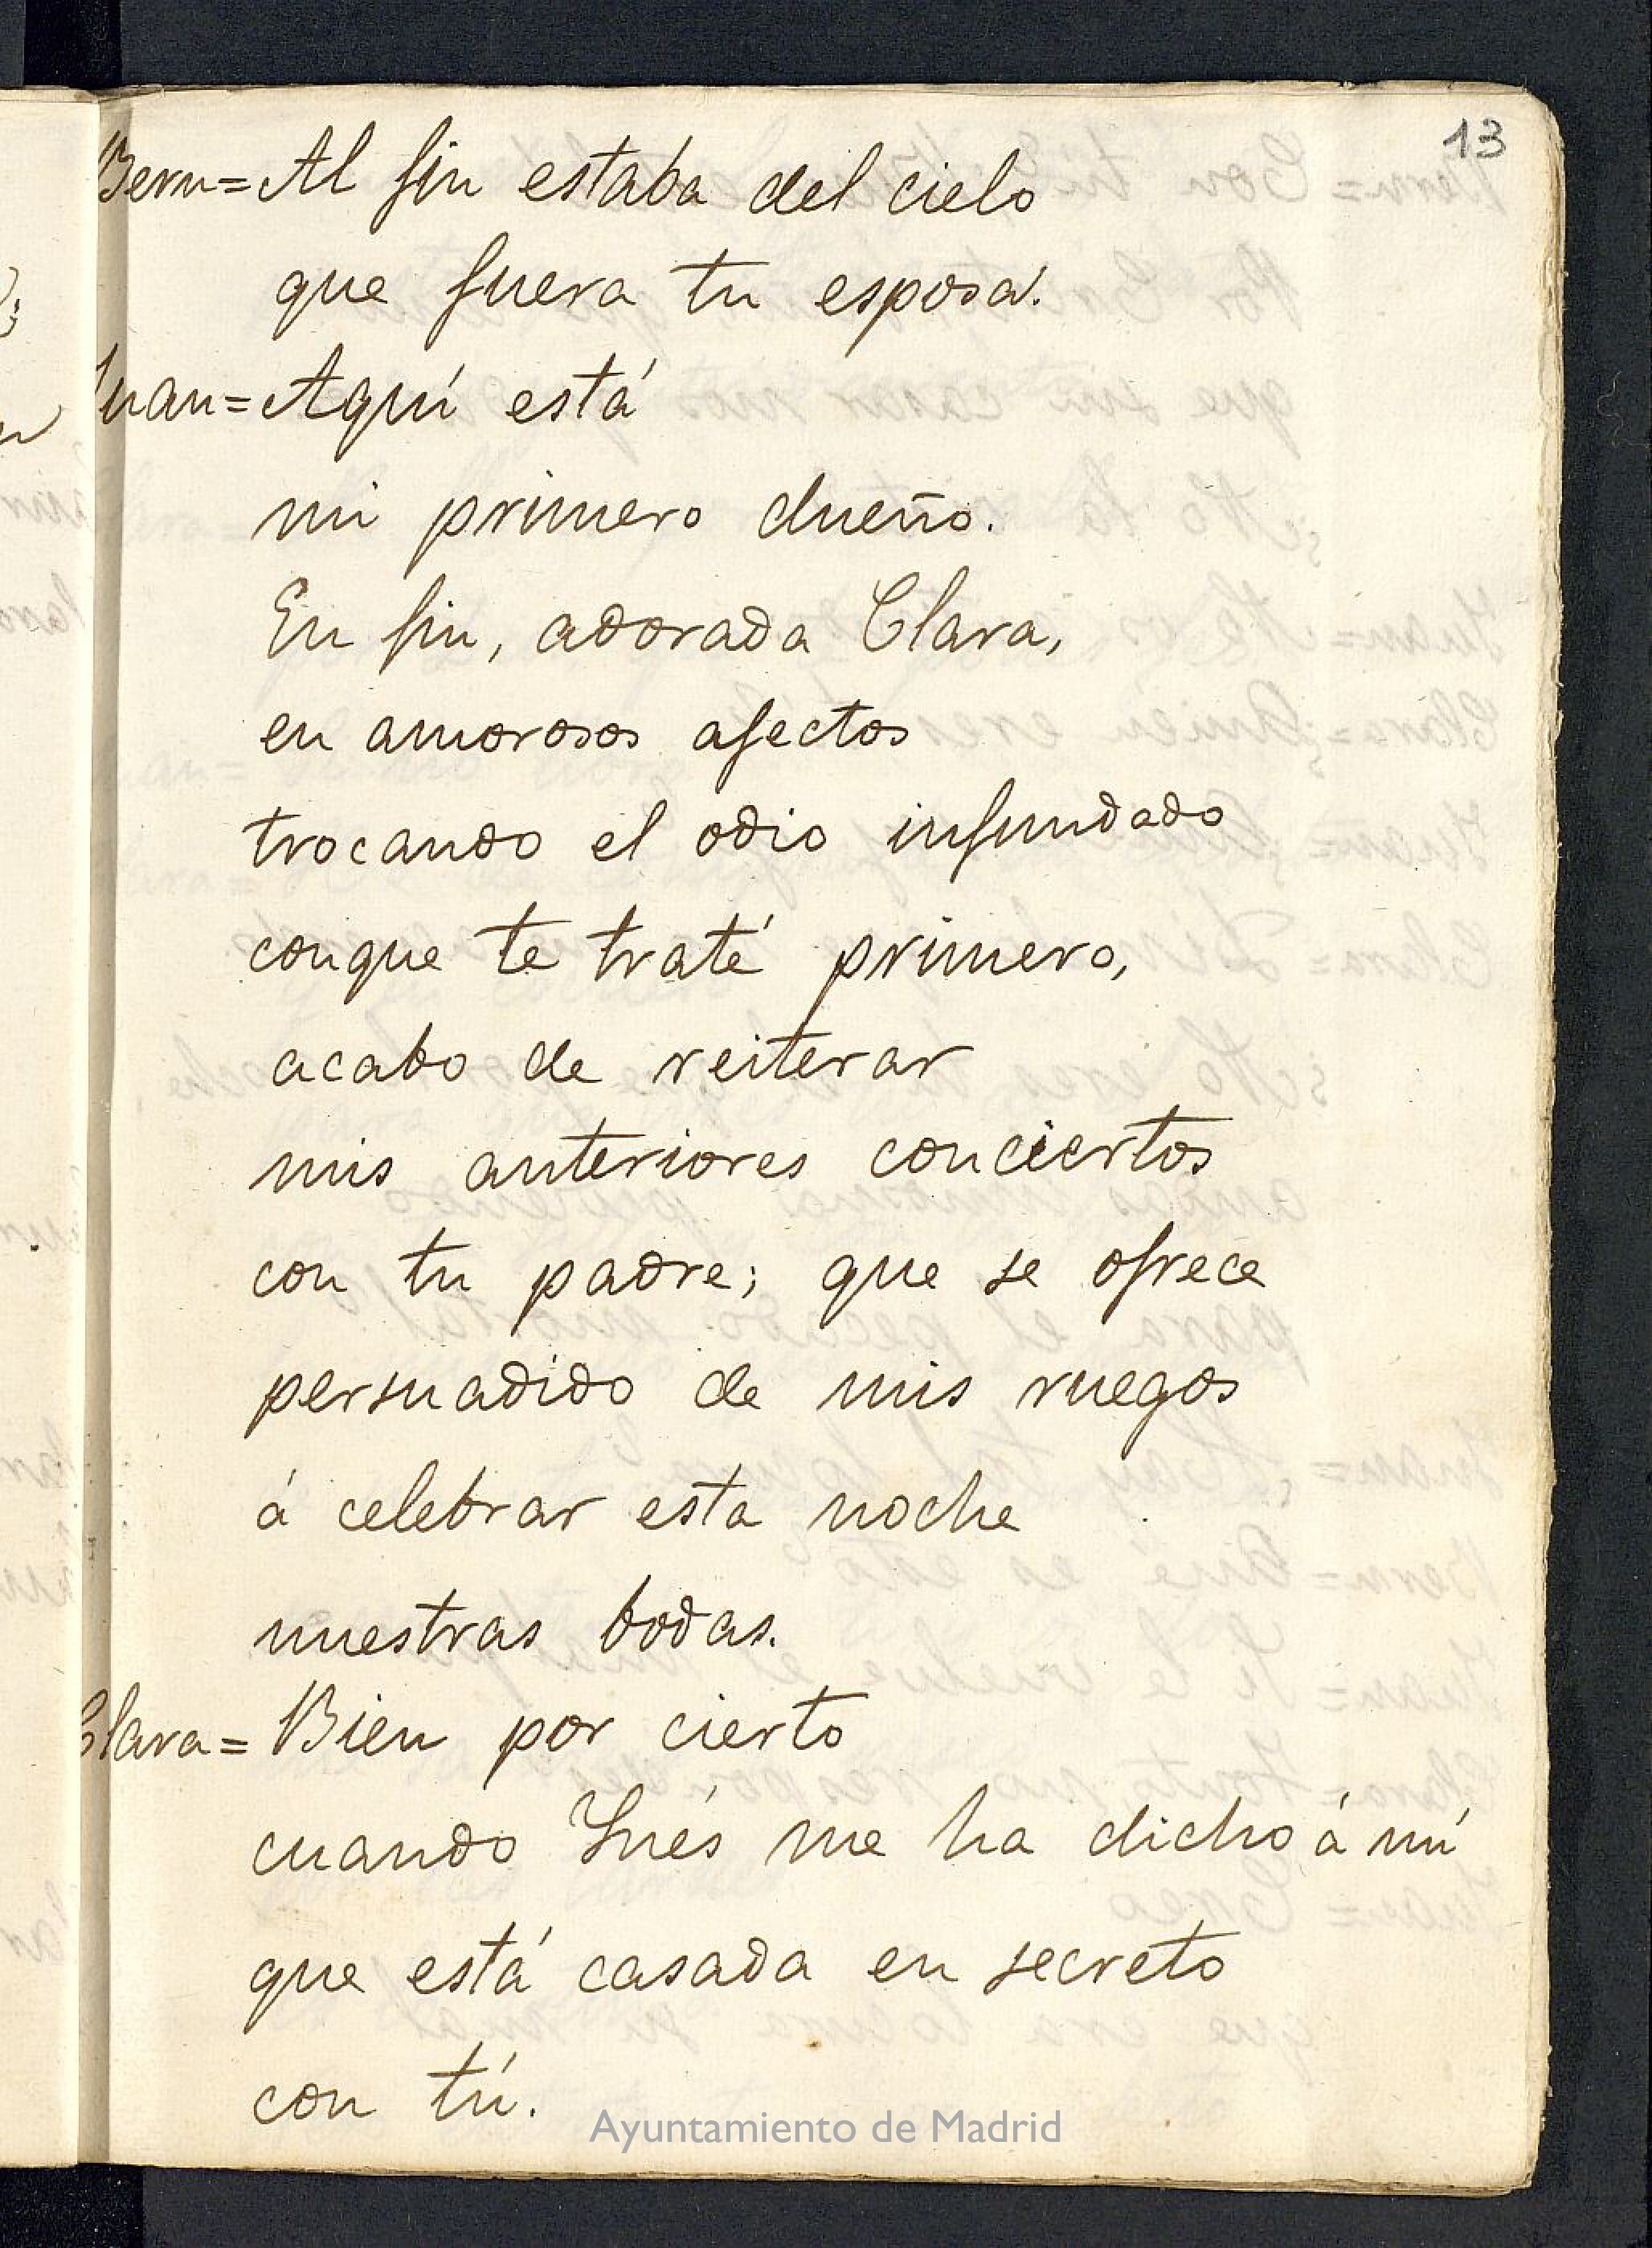 13
Bern= Al fin estaba del cielo
que fuera tu esposa.
Juan= Aquí está
mi primero dueño.
En fin, adorada Clara,
en amorosos afectos
trocando el odio infundado
conque te traté primero,
acabo de reiterar
mis anteriores conciertos
con tu padre; que se ofrece
persuadido de mis ruegos
á celebrar esta noche
nuestras bodas.
Clara= Bien por cierto
cuando Inés me ha dicho á mí
que está casada en secreto
con tú.
Ayuntamiento de Madrid